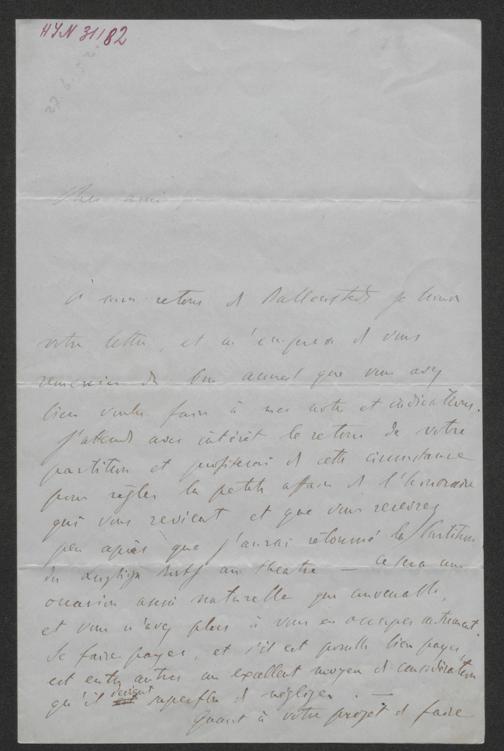 HSN 31182
27. 6. 52.
Cher ami
A mon retour de Ballenstedt je trouve
votre lettre, et m'empresse de vous
remercier du bon accueil que vous avez
bien voulu faire à mes notes et indications.
J'attends avec intérêt le retour de votre
partition et profiterai de cette circonstance
pour régler la petite affaire de l'honoraire
qui vous revient et que vous recevrez
peu après que j'aurai retourné la Partition
du au théâtre — Ce sera une
occasion aussi naturelle que convenable,
et vous n'avez plus à vous en occuper autrement.
Se faire payer, et s'il est possible bien payer
est entre autres un excellent moyen de considération
qu'il serait superflu de négliger. —
Quant à votre projet de faire